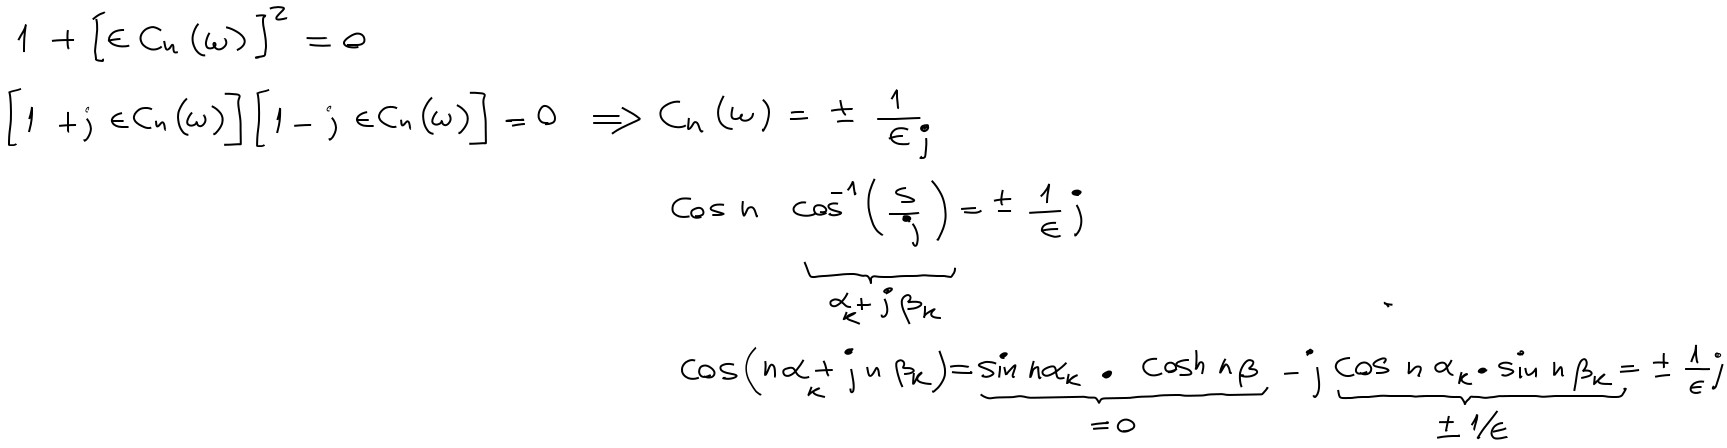 1 + [∈ Cn (ω)]² = 0
[1 + j ∈ Cn (ω)] [1 - j ∈ Cn (ω)] = 0 ⟹ Cn (ω) = ± 1/∈j
Cos n cos⁻¹ (s/j) = ± 1/∈ j
αk + j βk
Cos (n αk + j n βk) = sin nαk · Cosh nβ - j Cos n αk · sin n βk = ± 1/∈ j
= 0 ± 1/∈